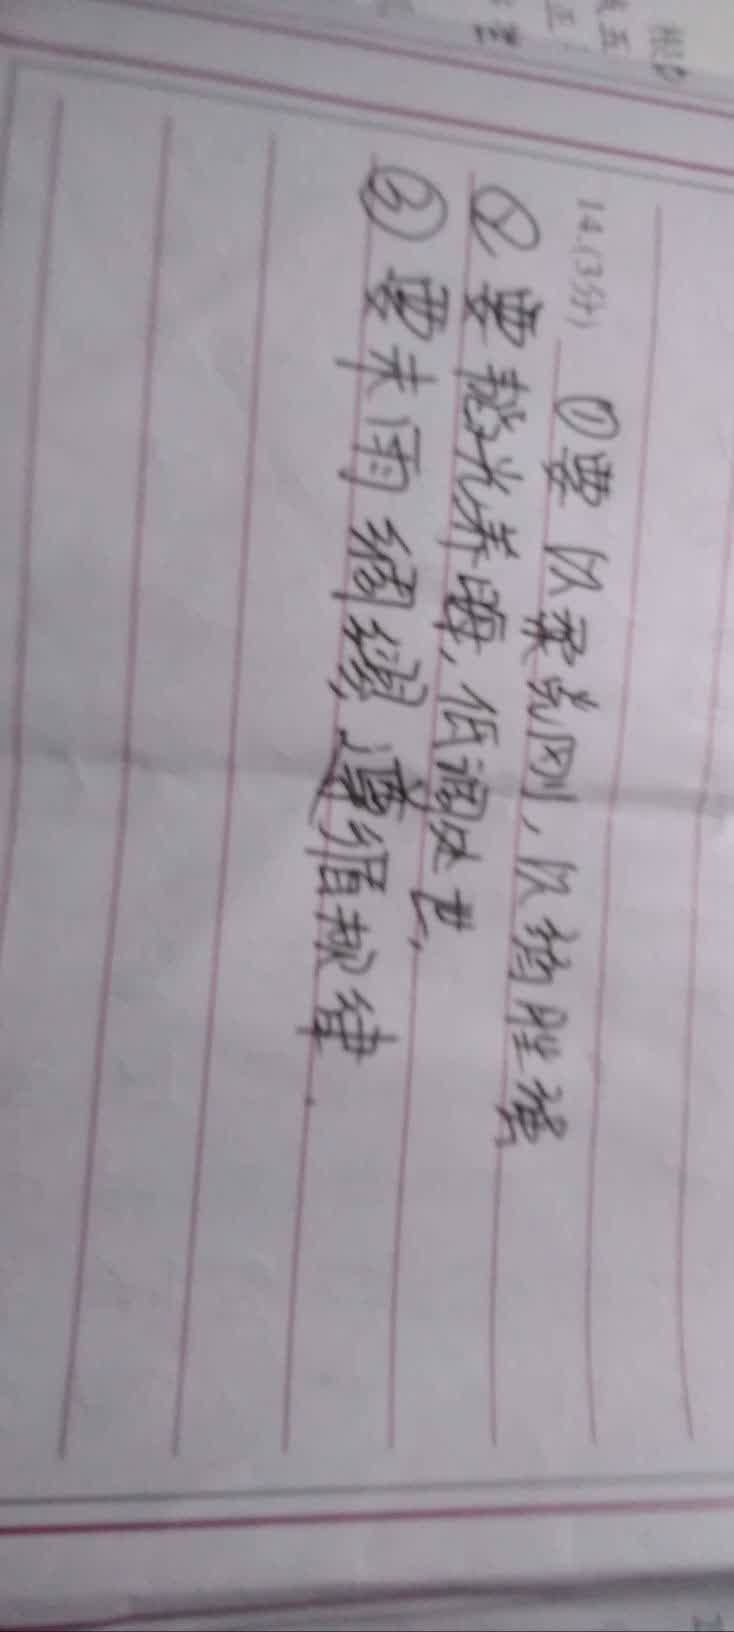 14.(3分) ①要以柔克刚,以弱胜强
②要韬光养晦,低调处世,
③要未雨绸缪,遵循规律.